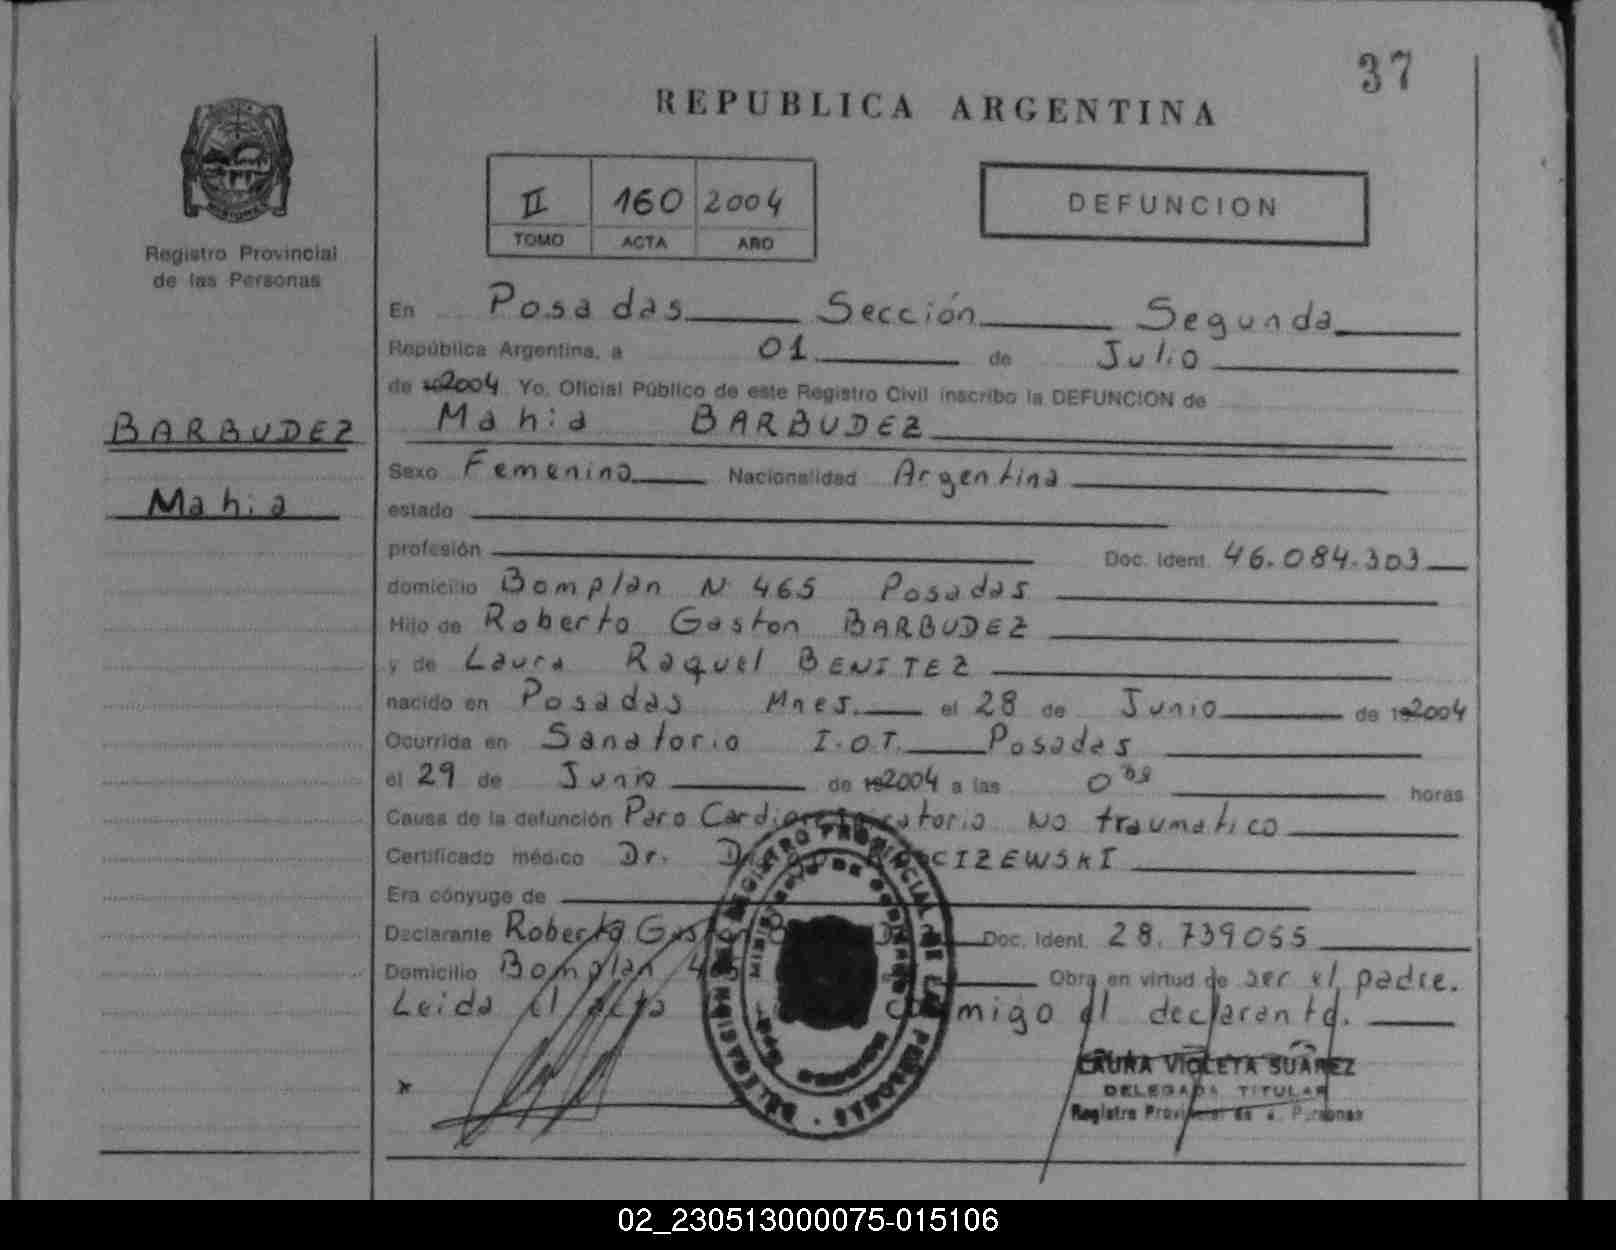 37
REPUBLICA ARGENTINA
II 160 2004
TOMO ACTA AÑO
DEFUNCION
Registro Provincial
de las Personas
BARBUDEZ
Mahia
En Posadas Sección Segunda
República Argentina, a 01 de Julio
de 2004 Yo, Oficial Público de este Registro Civil inscribo la DEFUNCION de
Mahia BARBUDEZ
Sexo Femenino Nacionalidad Argentina
estado
profesión Doc. Ident. 46.084.303
domicilio Bomplan N 465 Posadas
Hijo de Roberto Gaston BARBUDEZ
y de Laura Raquel BENITEZ
nacido en Posadas Mnes. el 28 de Junio de 2004
Ocurrida en Sanatorio I.O.T. Posadas
el 29 de Junio de 2004 a las 0 horas
Causa de la defunción Paro Cardiorespiratorio No traumatico
Certificado médico Dr.
Era cónyuge de
Declarante Roberto Doc. Ident. 28.739055
Domicilio Bomplan Obra en virtud de ser el padre.
Leida el acta conmigo el declarante.
x
LAURA VIOLETA SUAREZ
DELEGADA TITULAR
Registro Provincial de Personas
REGISTRO PROVINCIAL DE LAS PERSONAS
02_230513000075-015106